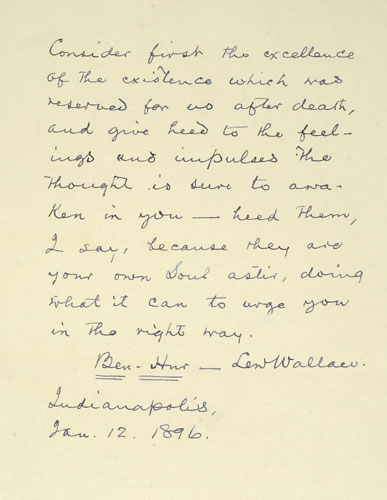 Consider first the excellence
of the existence which was
reserved for us after death,
and give heed to the feel-
ings and impulses the
thought is sure to awa-
ken in you — heed them,
I say, because they are
your own Soul astir, doing
what it can to urge you
in the right way.
Ben-Hur — Lew Wallace.
Indianapolis,
Jan. 12. 1896.